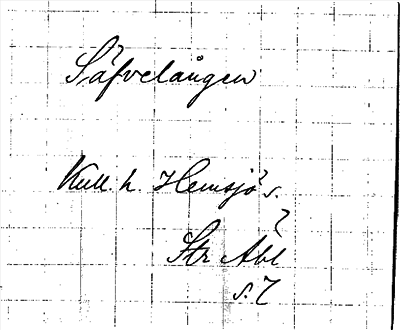 Säfvelången
Kull. h. Hemsjö s.
2
Str Abl
s. 7